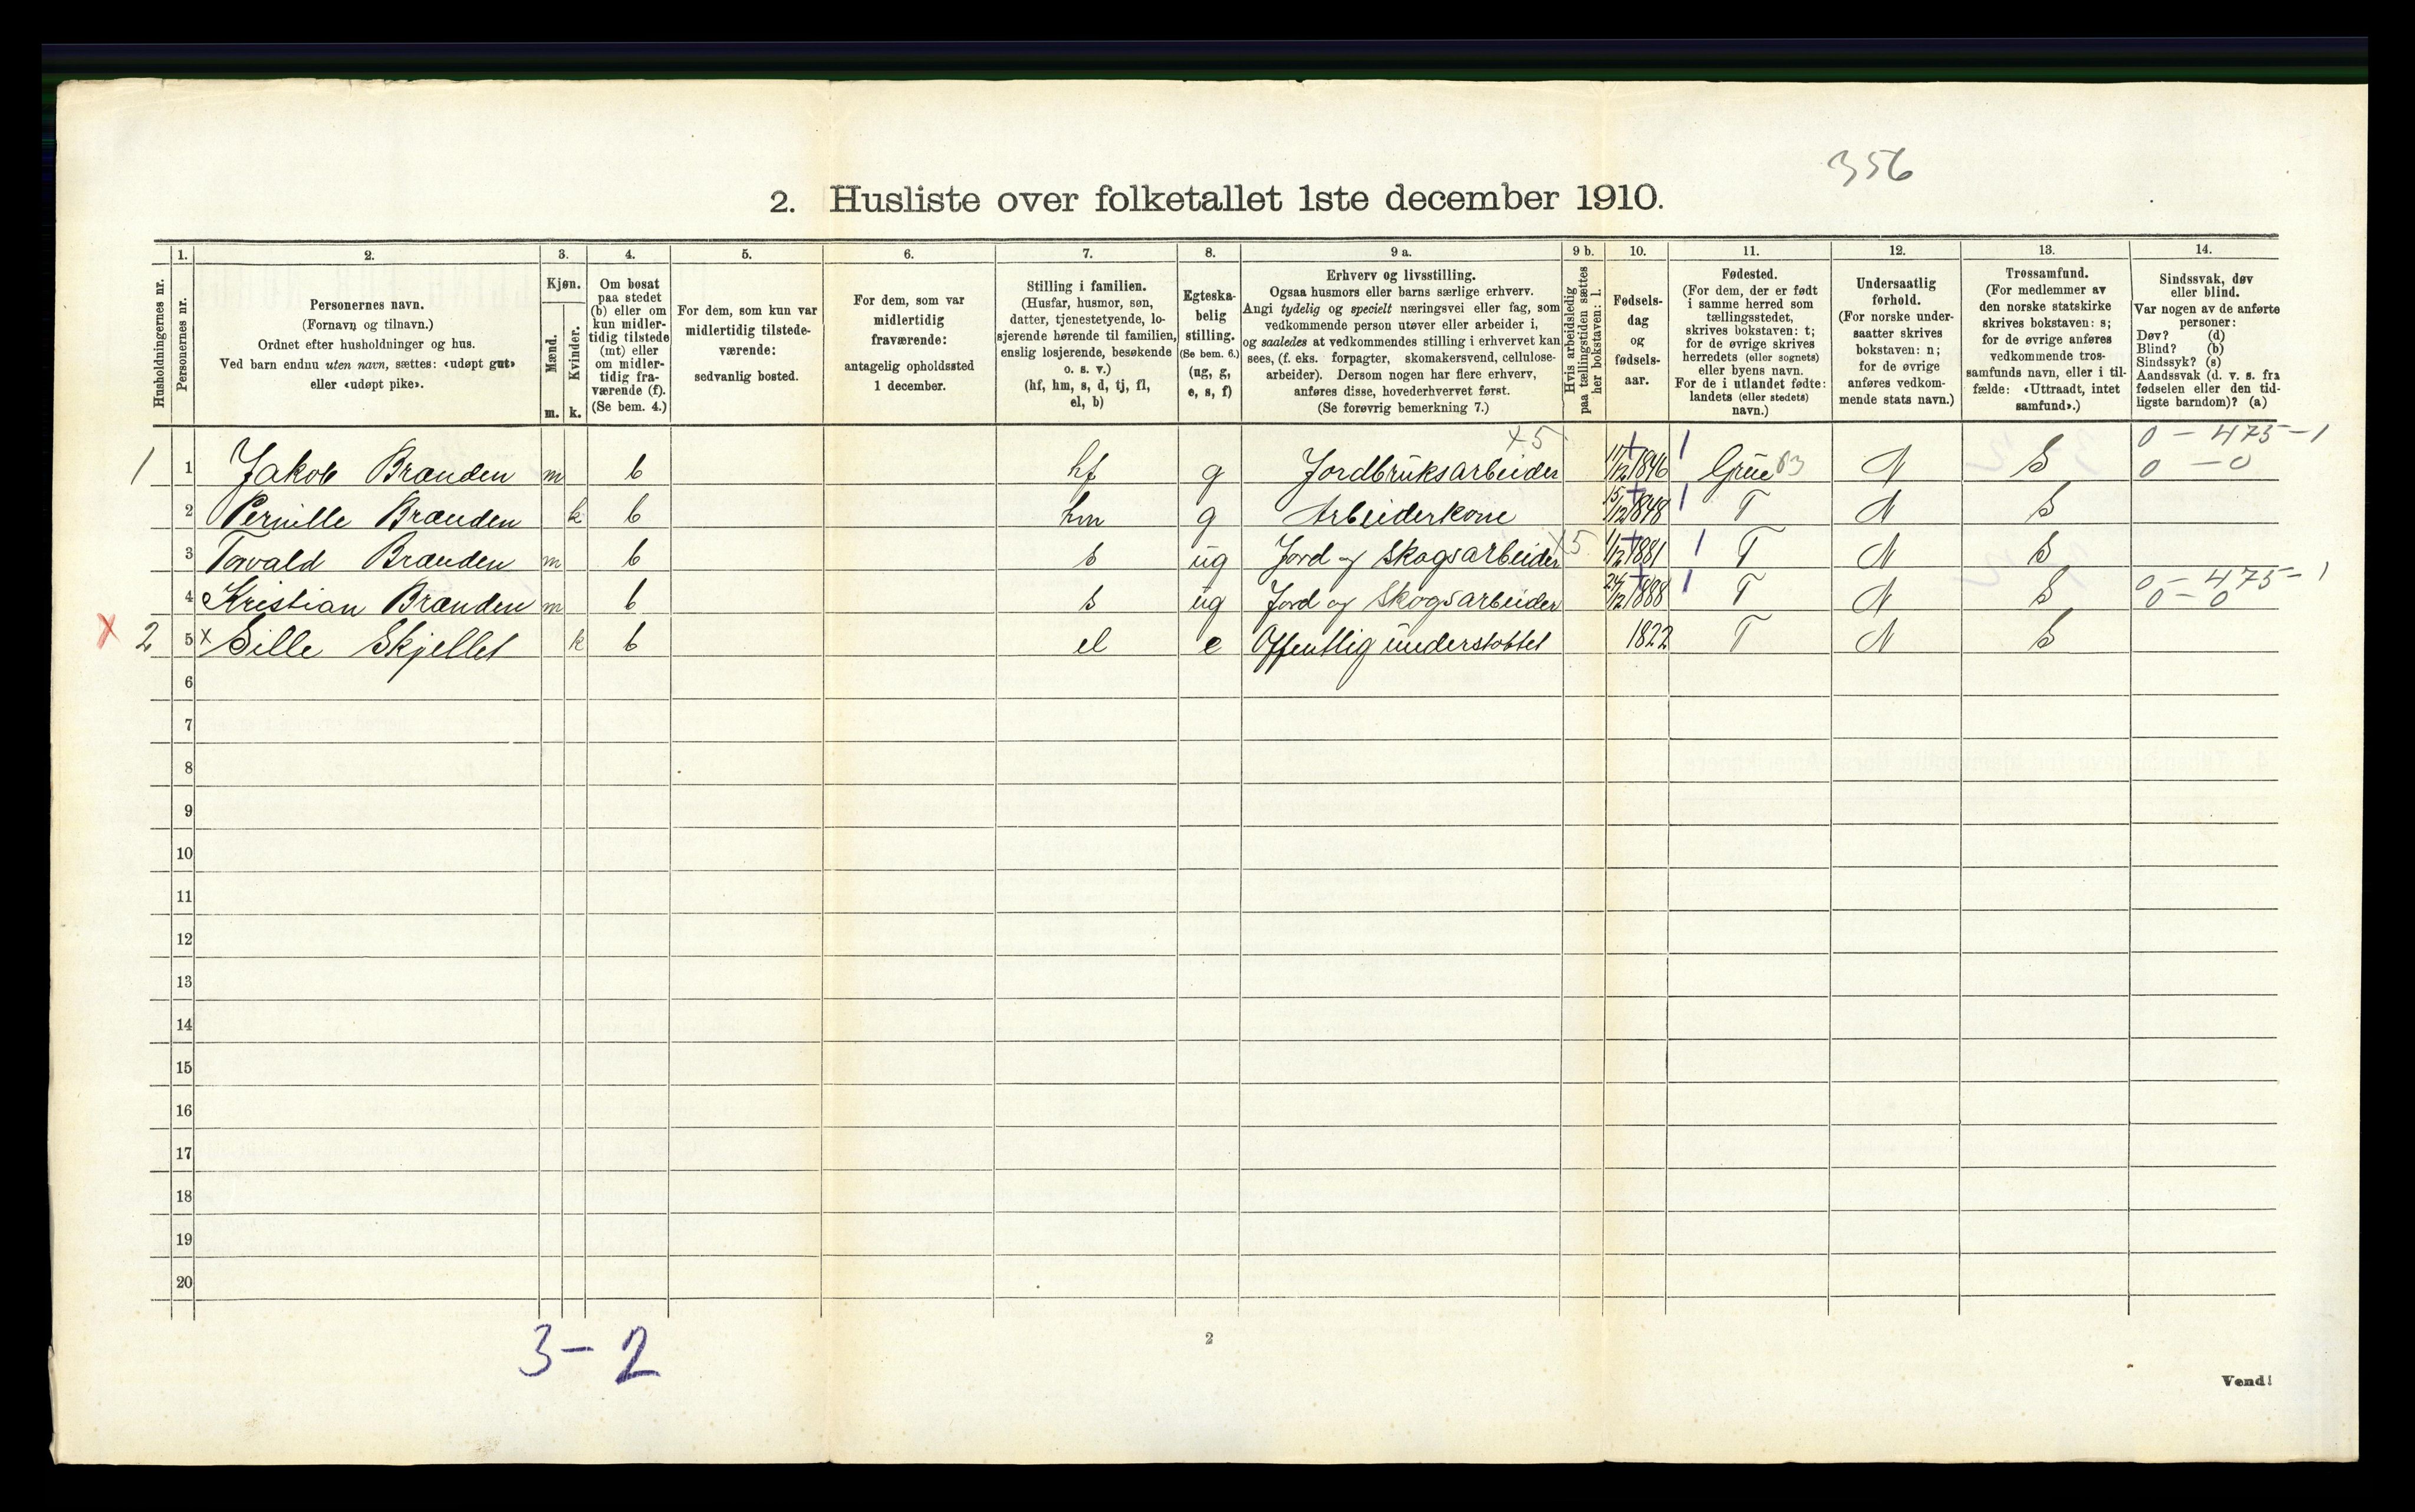 356
2. Husliste over folketallet 1ste december 1910.
Husholdningernes nr.
1. Personernes nr.
2. Personernes navn.
(Fornavn og tilnavn.)
Ordnet efter husholdninger og hus.
Ved barn endnu uten navn, sættes: «udøpt gut»
eller «udøpt pike».
3. Kjøn.
Mænd. m.
Kvinder. k.
4. Om bosat
paa stedet
(b) eller om
kun midler-
tidig tilstede
(mt) eller
om midler-
tidig fra-
værende (f).
(Se bem. 4.)
5. For dem, som kun var
midlertidig tilstede-
værende:
sedvanlig bosted.
6. For dem, som var
midlertidig
fraværende:
antagelig opholdssted
1 december.
7. Stilling i familien.
(Husfar, husmor, søn,
datter, tjenestetyende, lo-
sjerende hørende til familien,
enslig losjerende, besøkende
o. s. v.)
(hf, hm, s, d, tj, fl,
el, b)
8. Egteska-
belig
stilling.
(Se bem. 6.)
(ug, g,
e, s, f)
9 a. Erhverv og livsstilling.
Ogsaa husmors eller barns særlige erhverv.
Angi tydelig og specielt næringsvei eller fag, som
vedkommende person utøver eller arbeider i,
og saaledes at vedkommendes stilling i erhvervet kan
sees, (f. eks. forpagter, skomakersvend, cellulose-
arbeider). Dersom nogen har flere erhverv,
anføres disse, hovederhvervet først.
(Se forøvrig bemerkning 7.)
9 b. Hvis arbeidsledig
paa tællingstiden sættes
her bokstaven: l.
10. Fødsels-
dag
og
fødsels-
aar.
11. Fødested.
(For dem, der er født
i samme herred som
tællingsstedet,
skrives bokstaven: t;
for de øvrige skrives
herredets (eller sognets)
eller byens navn.
For de i utlandet fødte:
landets (eller stedets)
navn.)
12. Undersaatlig
forhold.
(For norske under-
saatter skrives
bokstaven: n;
for de øvrige
anføres vedkom-
mende stats navn.)
13. Trossamfund.
(For medlemmer av
den norske statskirke
skrives bokstaven: s;
for de øvrige anføres
vedkommende tros-
samfunds navn, eller i til-
fælde: «Uttraadt, intet
samfund».)
14. Sindssvak, døv
eller blind.
Var nogen av de anførte
personer:
Døv? (d)
Blind? (b)
Sindssyk? (s)
Aandssvak (d. v. s. fra
fødselen eller den tid-
ligste barndom)? (a)
+5 0 - 475 - 1
1 1 Jakob Brænden m b hf g Jordbruksarbeider 17/12 1846 Grue 03 N S 0 - 0
2 Pernille Brænden k b hm g Arbeiderkone 15/12 1848 T N S
3 Torvald Brænden m b s ug Jord og skogsarbeider x5 1/12 1881 T N S
0 - 475 - 1
4 Kristian Brænden m b s ug Jord og skogsarbeider 24/12 1888 T N S 0 - 0
x 2 5 x Sille Skjellet k b el e Offentlig understøttet 1822 T N S
6
7
8
9
10
11
12
13
14
15
16
17
18
19
20
3 - 2
2
Vend!